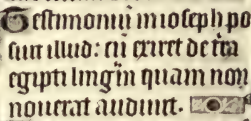 Testimoniū in ioseph po
suit illud: cū exiret de t̄ra
egipti lingūā quam non
nouerat audiuit.